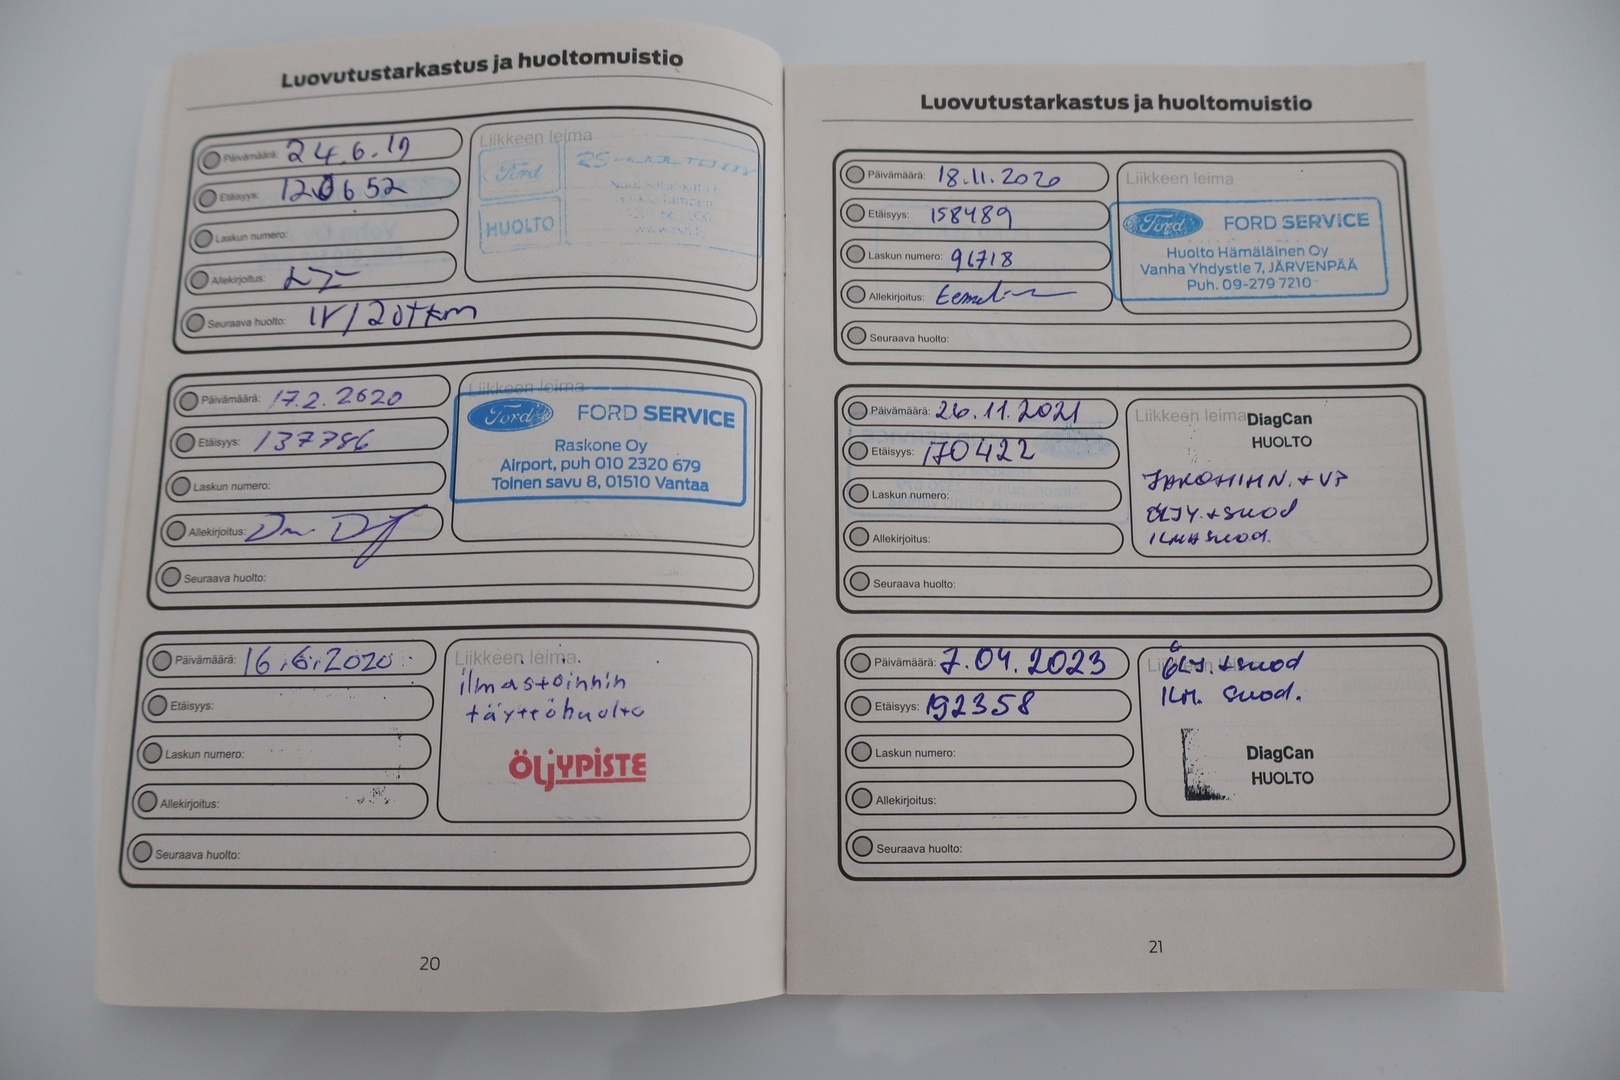 Luovutustarkastus ja huoltomuistio
Päivämäärä: 24.6.19
Etäisyys: 120652
Laskun numero:
Allekirjoitus:
Seuraava huolto: 1V/20tkm
Liikkeen leima
Ford
HUOLTO
Päivämäärä: 17.2.2020
Etäisyys: 137786
Laskun numero:
Allekirjoitus:
Seuraava huolto:
Liikkeen leima
Ford FORD SERVICE
Raskone Oy
Airport, puh 010 2320 679
Toinen savu 8, 01510 Vantaa
Päivämäärä: 16.6.2020
Etäisyys:
Laskun numero:
Allekirjoitus:
Seuraava huolto:
Liikkeen leima
ilmastoinnin
täyttöhuolto
ÖLJYPISTE
20
Luovutustarkastus ja huoltomuistio
Päivämäärä: 18.11.2020
Etäisyys: 158489
Laskun numero: 96718
Allekirjoitus:
Seuraava huolto:
Liikkeen leima
Ford FORD SERVICE
Huolto Hämäläinen Oy
Vanha Yhdystie 7, JÄRVENPÄÄ
Puh. 09-279 7210
Päivämäärä: 26.11.2021
Etäisyys: 170422
Laskun numero:
Allekirjoitus:
Seuraava huolto:
Liikkeen leima
DiagCan
HUOLTO
JAKOHIHN. + VP
ÖLJY. + SUOD
ILMASUOD.
Päivämäärä: 7.04.2023
Etäisyys: 192358
Laskun numero:
Allekirjoitus:
Seuraava huolto:
ÖLJ. + SUOD
ILM. SUOD.
DiagCan
HUOLTO
21